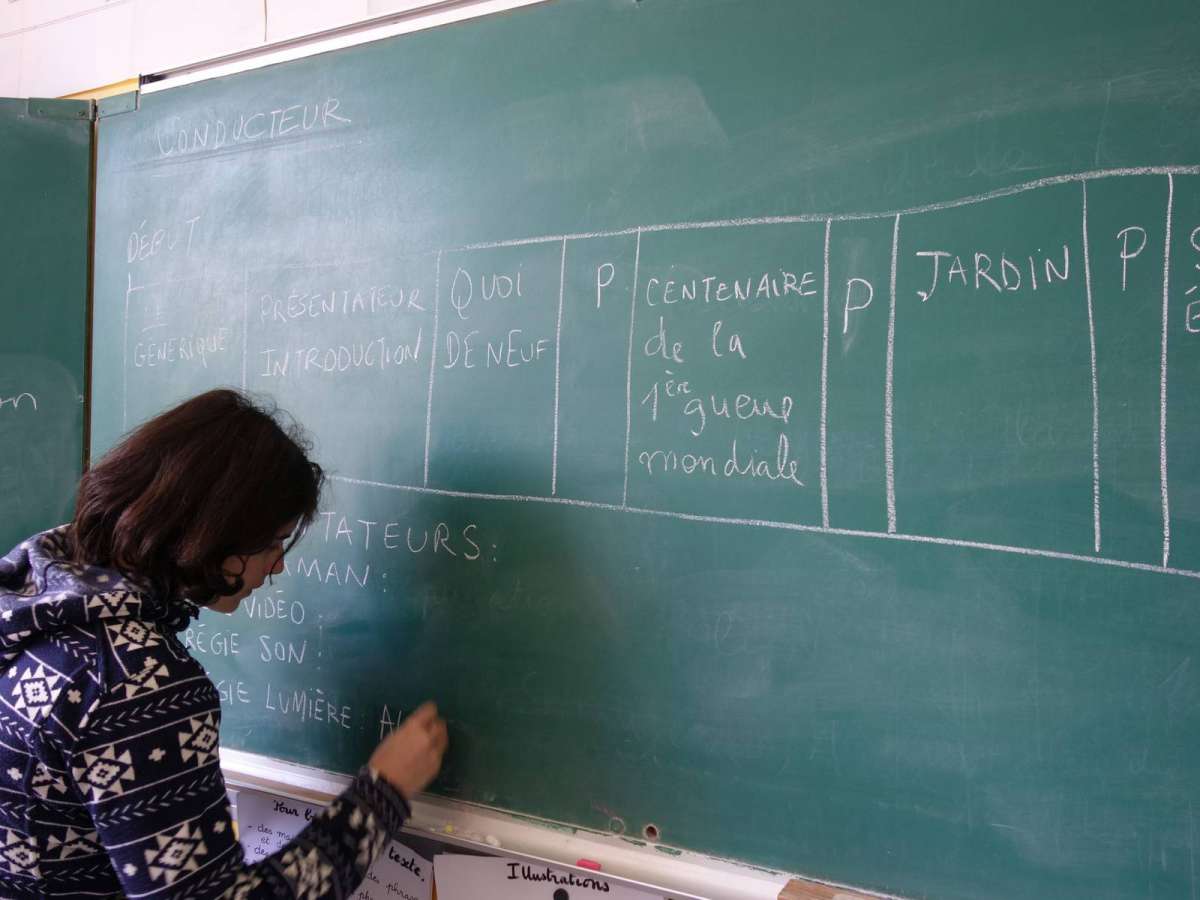 CONDUCTEUR
DÉBUT
GÉNÉRIQUE
PRÉSENTATEUR
INTRODUCTION
QUOI
DE NEUF
P
CENTENAIRE
de la
1ère guerre
mondiale
P
JARDIN
P
TATEURS:
MAN:
VIDÉO:
RÉGIE SON:
GIE LUMIÈRE:
texte.
Illustrations